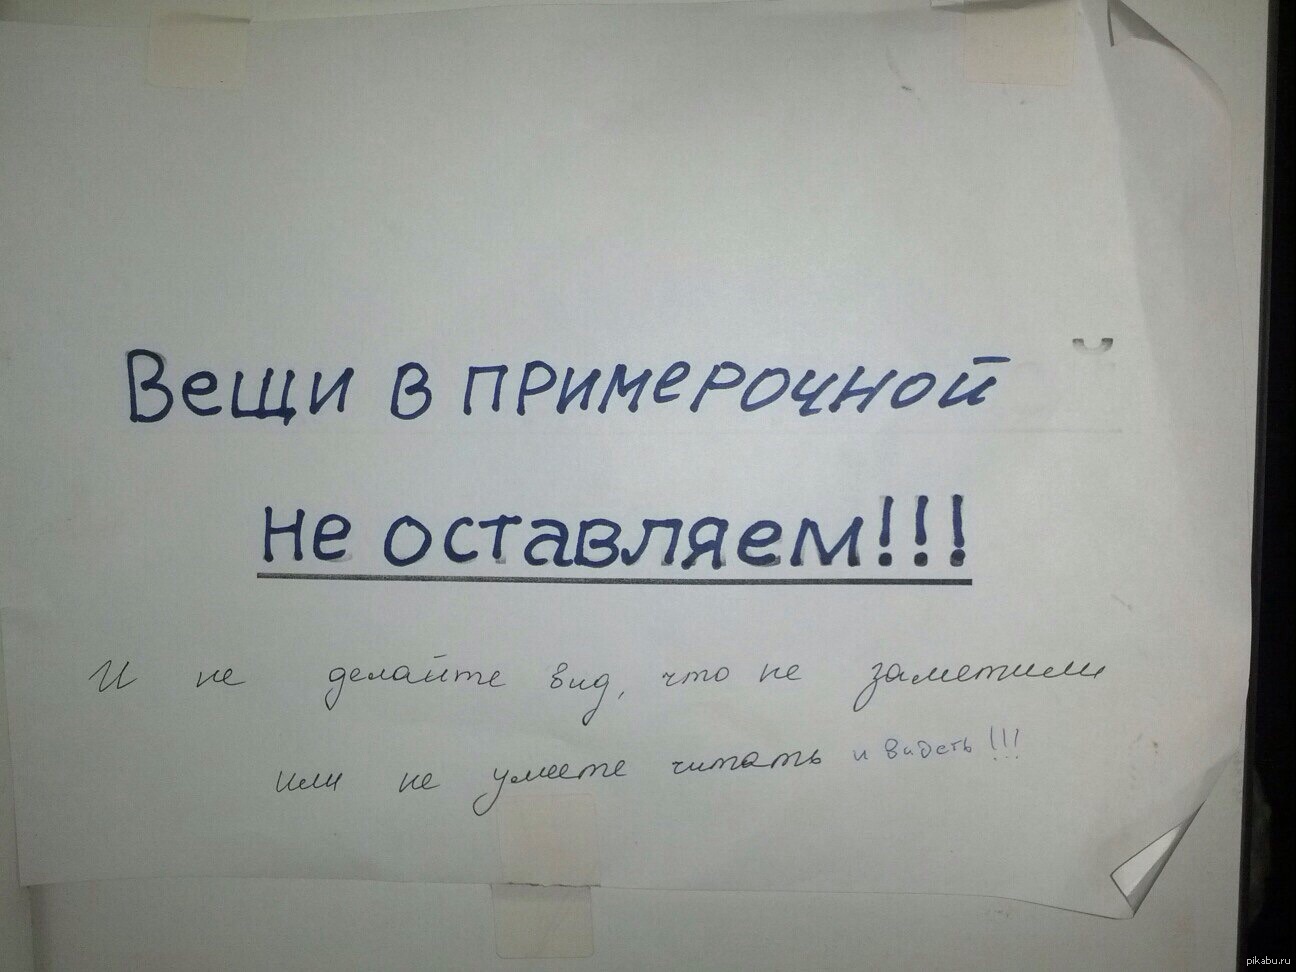 Вещи в примерочной
не оставляем!!!
И не делайте вид, что не заметили
или не умеете читать и видеть!!!
pikabu.ru